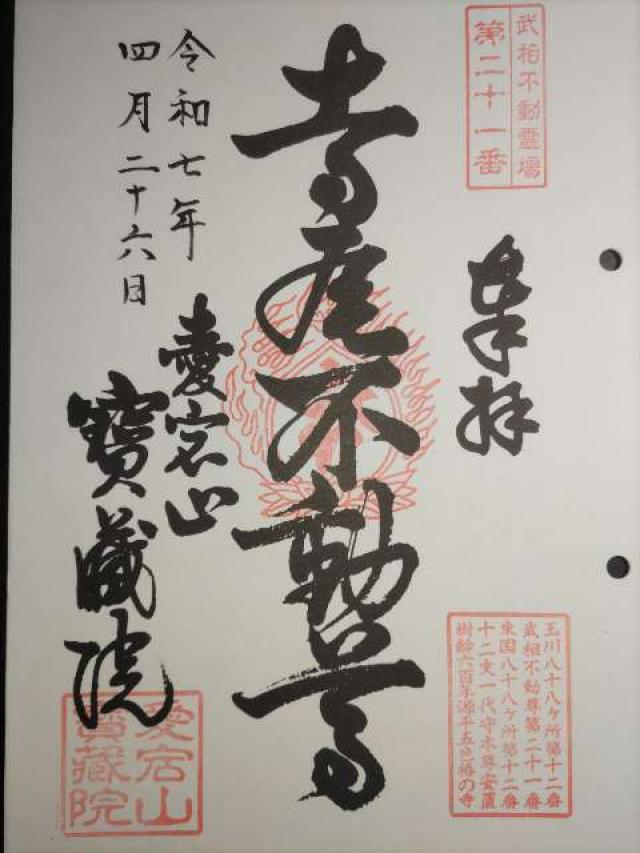 武相不動霊場
第二十一番
奉拝
不動尊
令和七年
四月二十六日
愛宕山
寶蔵院
愛宕山
寶蔵院
玉川八十八ケ所第十二番
武相不動尊第二十一番
東国八十八ケ所第十二番
十二支一代守本尊安置
樹齢六百年源平五色椿の寺